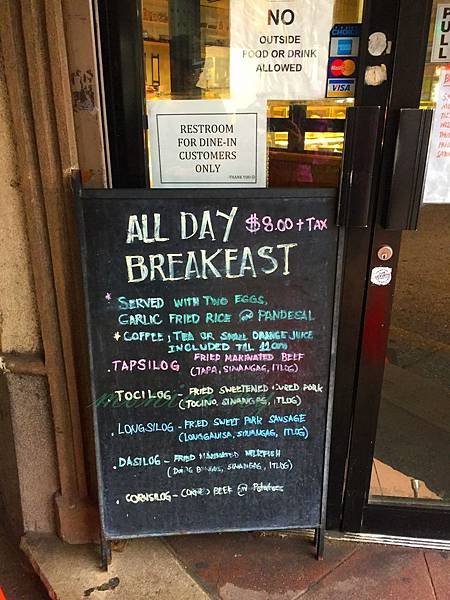 NO
OUTSIDE
FOOD OR DRINK
ALLOWED
MasterCard
VISA
PULL
RESTROOM
FOR DINE-IN
CUSTOMERS
ONLY
THANK YOU
ALL DAY $8.00 + TAX
BREAKFAST
* SERVED WITH TWO EGGS,
GARLIC FRIED RICE OR PANDESAL
* COFFEE, TEA OR SMALL ORANGE JUICE
INCLUDED TIL 11am
. TAPSILOG FRIED MARINATED BEEF
(TAPA, SINANGAG, ITLOG)
TOCILOG - FRIED SWEETENED CURED PORK
(TOCINO, SINANGAG, ITLOG)
. LONGSILOG - FRIED SWEET PORK SAUSAGE
(LONGGANISA, SINANGAG, ITLOG)
. DASILOG - FRIED MARINATED MILKFISH
(DAING BANGUS, SINANGAG, ITLOG)
. CORNSILOG - CORNED BEEF Potatoes